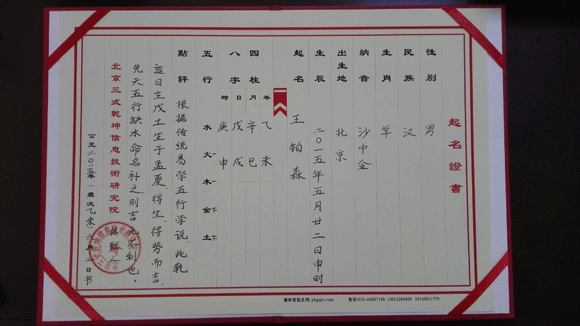 起名證書
性別 男
民族 汉
生肖 羊
納音 沙中金
出生地 北京
生辰 二〇一五年五月廿二日申时
起名 王铂森
四柱 年 月 日 時
八字 乙未 辛巳 戊戌 庚申
五行 水 火 木 金 土
點評 根据传统易学五行学说，此乾
造日主戊土生于孟夏得生，得势而吉，
先天五行缺水命名补之则吉
北京三式乾坤信息技術研究院
公元二〇一五年（歲次乙未）